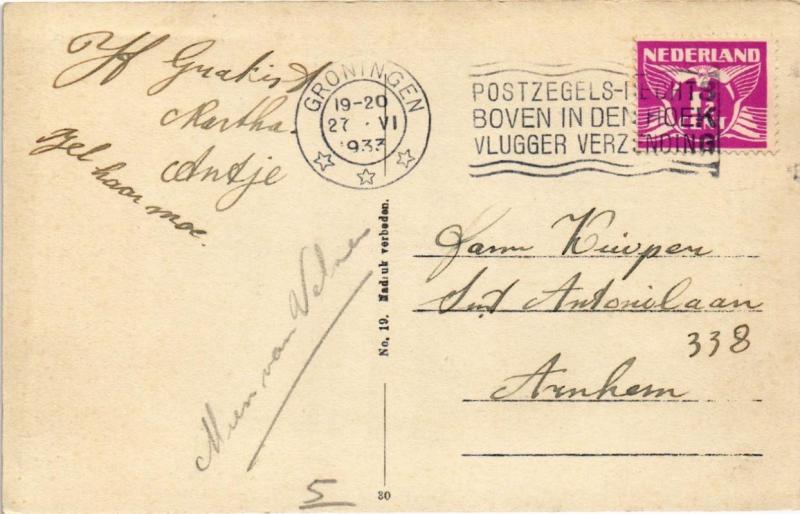 Martha
Antje
haar moe.
Mien van
5
GRONINGEN
19-20
27 . VI
1933
POSTZEGELS RECHTS
BOVEN IN DEN HOEK
VLUGGER VERZENDING
NEDERLAND
No. 19. Nadruk verboden.
Kuiper
Sint Antonielaan
338
Arnhem
30